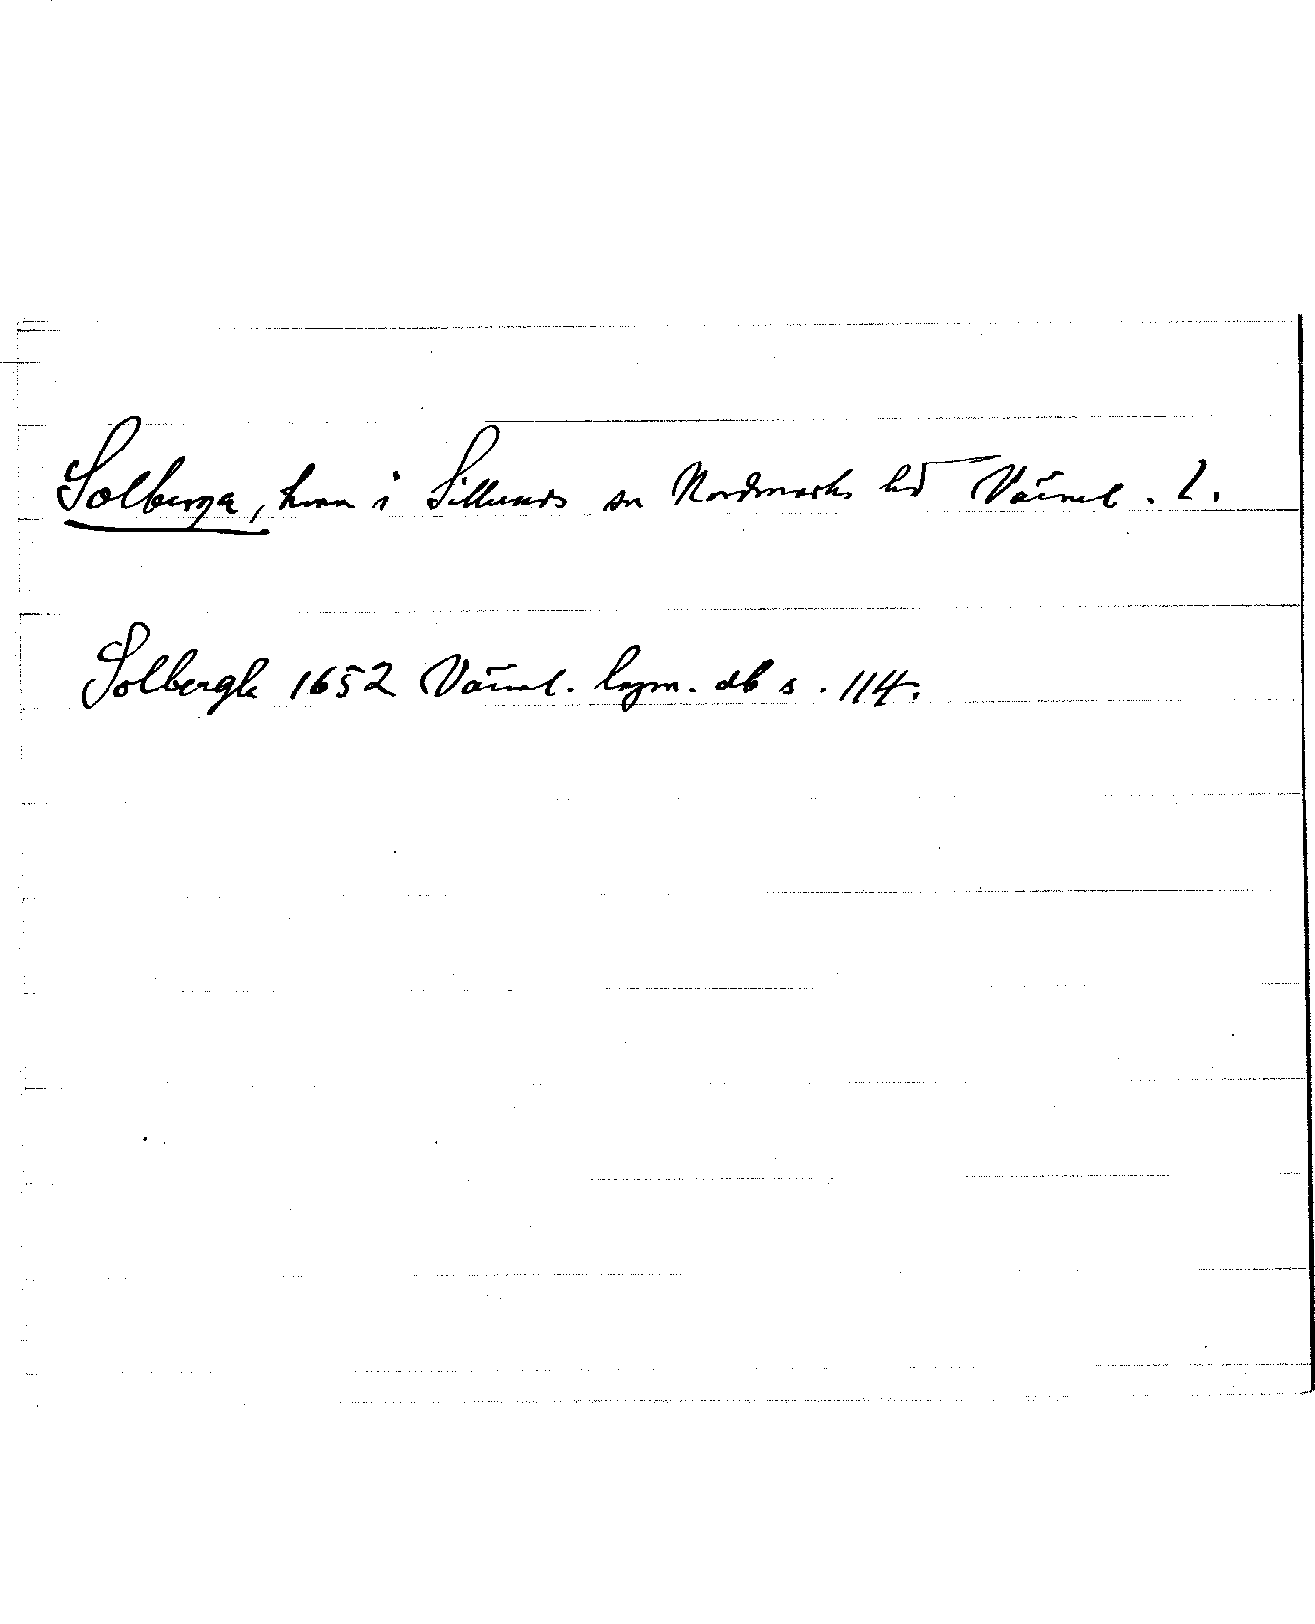 Solberga, hmn i Silleruds sn Nordmarks hd Värml. l.
Solbergh 1652 Värml. lagm. db s. 114.